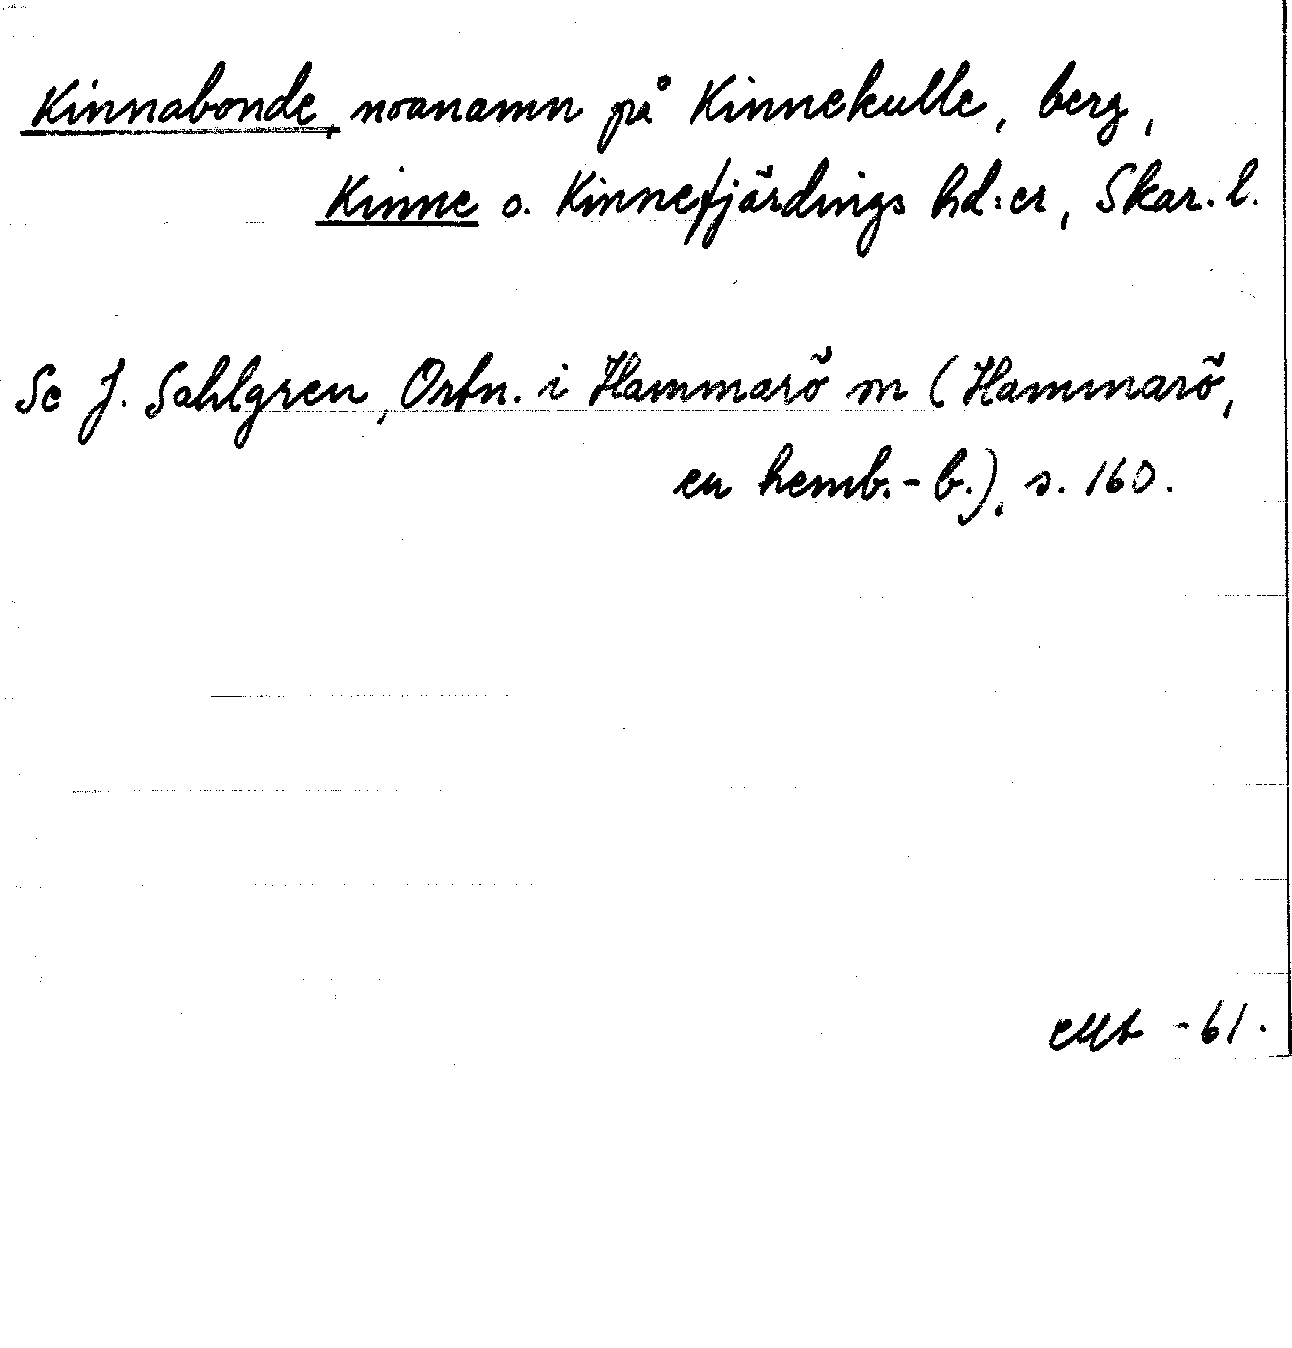 Kinnabonde, noanamn på Kinnekulle, berg,
Kinne o. Kinnefjärdings hd:er, Skar. l.
Se J. Sahlgren, Ortn. i Hammarö sn (Hammarö,
en hemb.-b.), s. 160.
-61.